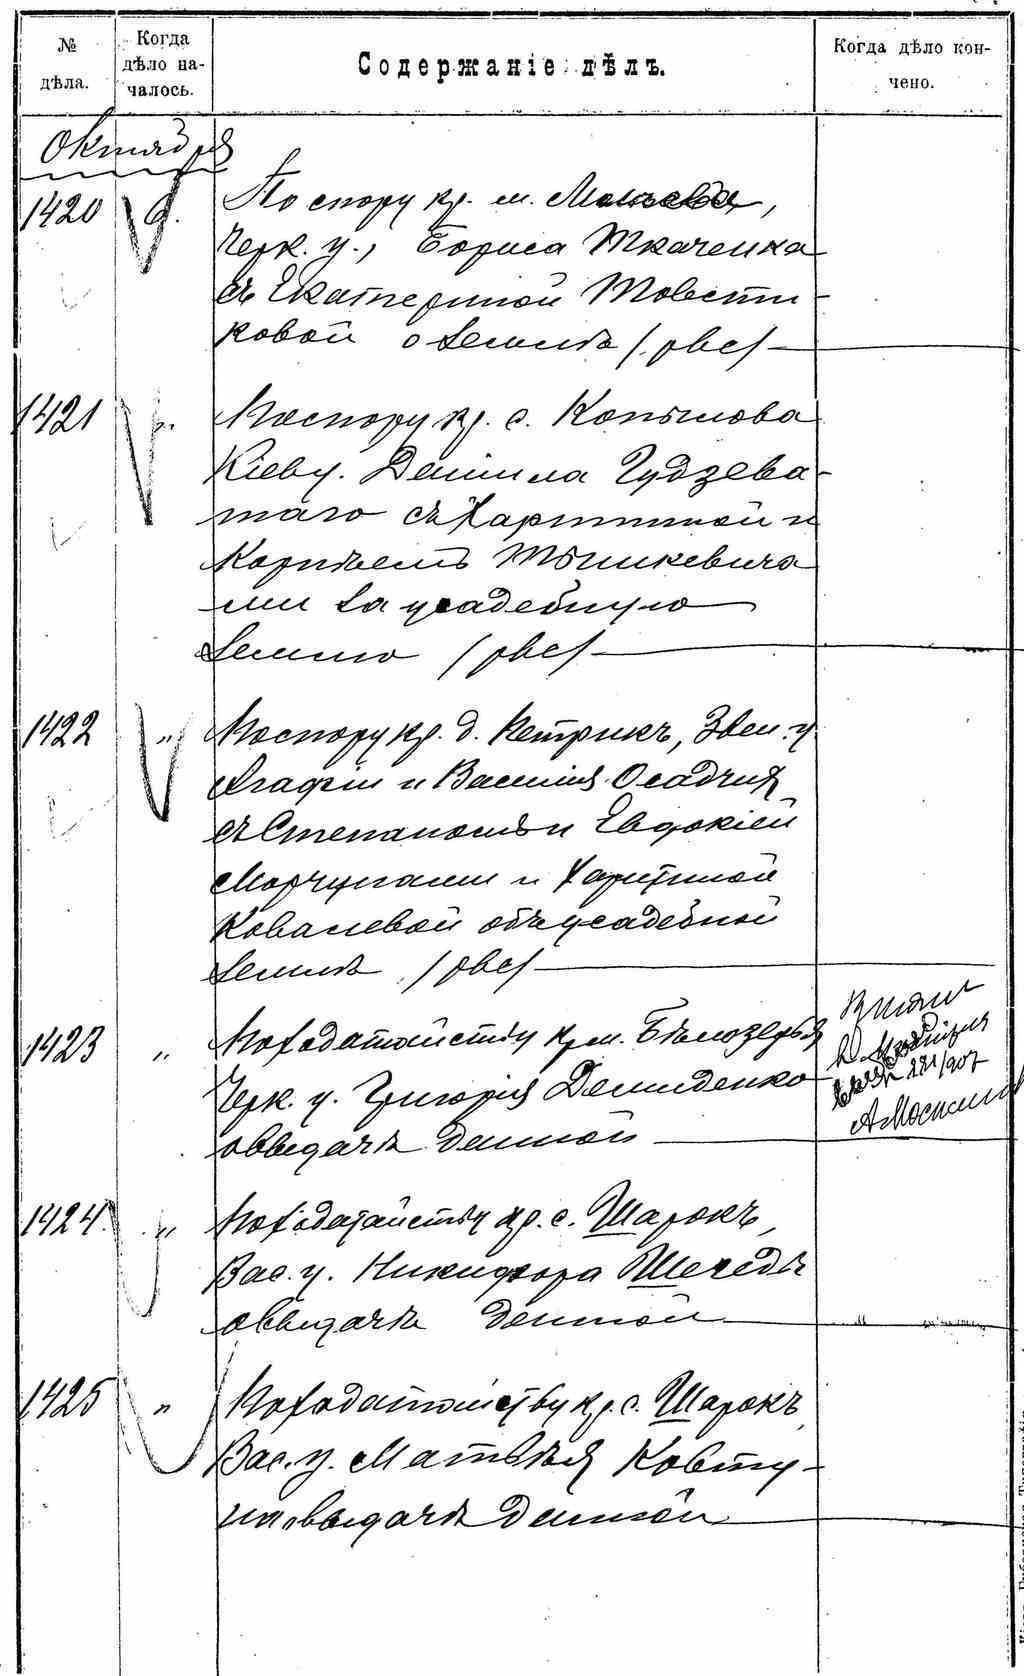 № дѣла.
Когда дѣло на-чалось.
Содержаніе дѣлъ.
Когда дѣло кон-чено.
Октября
1420 9. По спору кр. м. Мошева,
Черк. у., Бориса Ткаченка
съ Екатериной Товсти-
ковой о землѣ /рвс/
1421 „ По спору кр. с. Копылова
Кіев у. Данила Гудзева-
таго съ Харитиной и
Корнѣемъ Тышкевича-
ми за усадебную
землю /рвс/
1422 „ По спору кр. д. Петрикъ, Звен. у.
Агафіи и Василія Осадчихъ
съ Степаномъ и Евдокіей
Морчулами и Харитиной
Ковалевой объ усадебной
землѣ /рвс/
1423 „ По ходатайству кр. м. Бѣлозерья
Черк. у. Григорія Демиденко
о выдачѣ данной
221/907
1424 „ По ходатайству кр. с. Шарокъ,
Вас. у. Никифора Шегеды
о выдачѣ данной
1425 „ По ходатайству кр. с. Шарокъ
Вас. у. Матвѣя Ковту-
на о выдачѣ данной